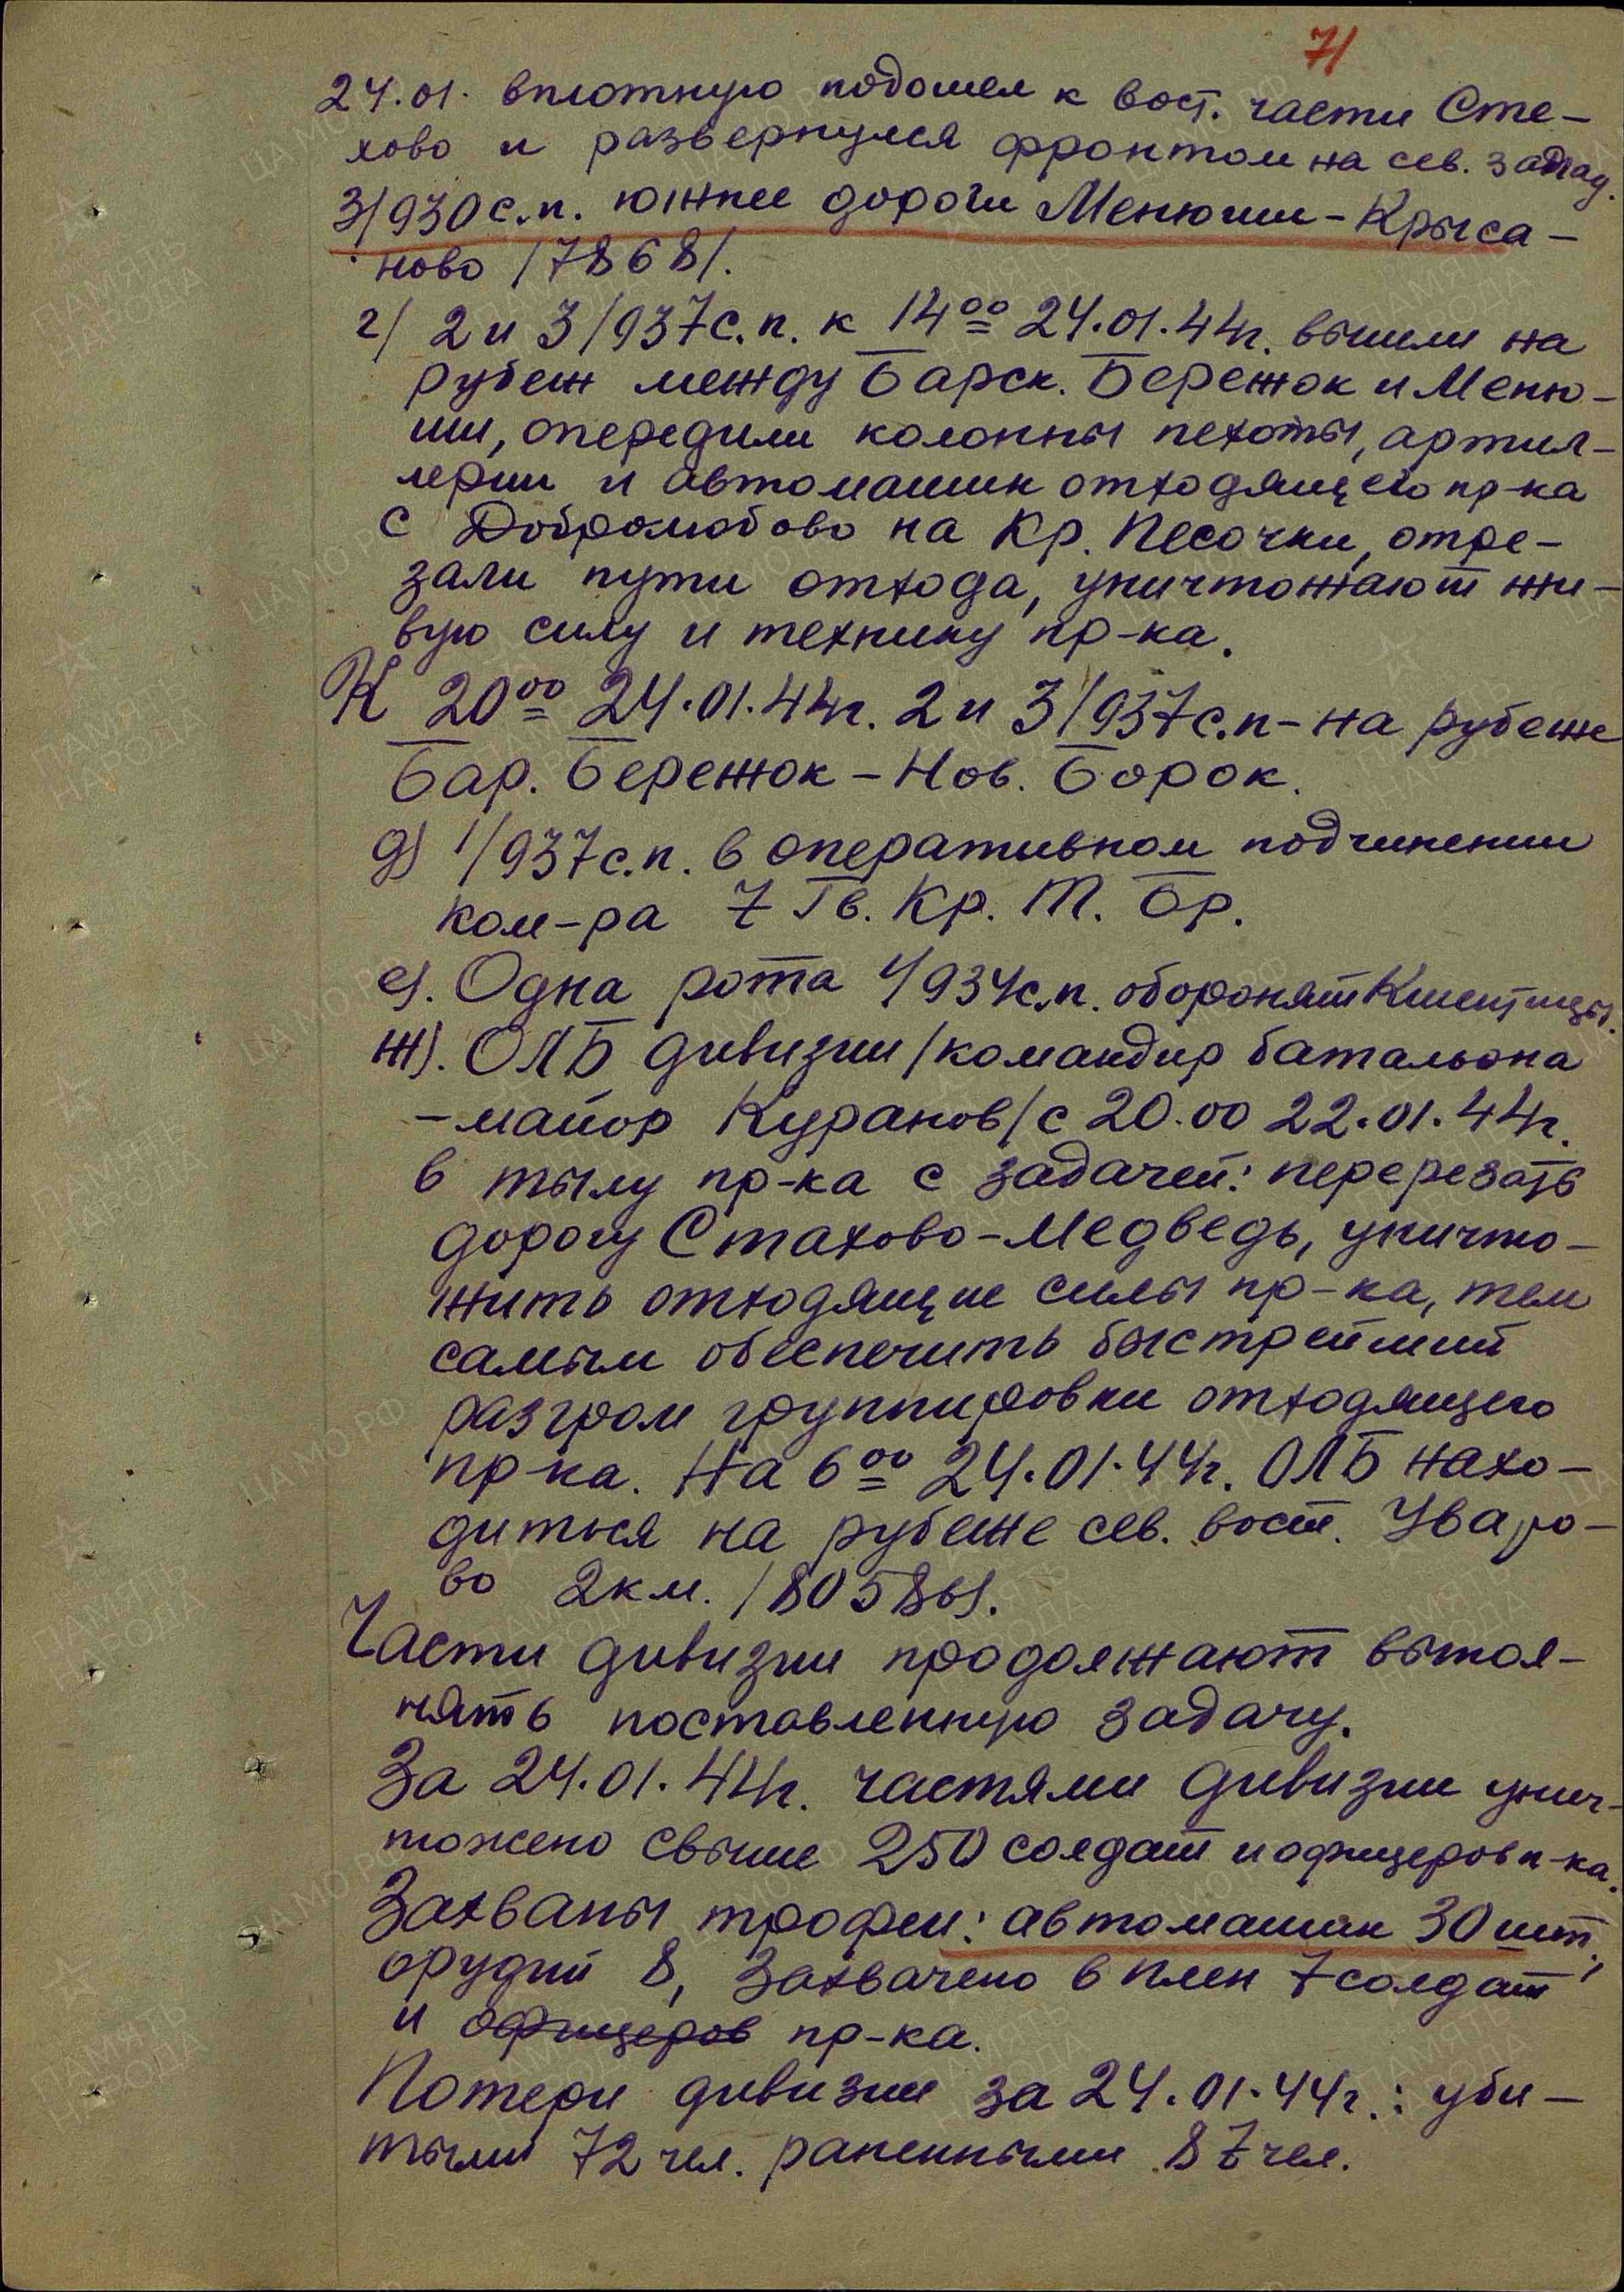 71
24.01. вплотную подошел к вост. части Сте-
хово и развернулся фронтом на сев. запад.
3/930 с.п. южнее дороги Менюши - Крыса-
ново /7868/.
г/ 2 и 3/937 с.п. к 14⁰⁰ 24.01.44г. вышли на
рубеж между Барск. Бережок и Меню-
ши, опередили колонны пехоты, артил-
лерии и автомашин отходящего пр-ка
с Добролюбово на Кр. Песочки, отре-
зали пути отхода, уничтожают жи-
вую силу и технику пр-ка.
К 20⁰⁰ 24.01.44г. 2 и 3/937 с.п - на рубеже
Бар. Бережок - Нов. Борок.
д) 1/937 с.п. в оперативном подчинении
ком-ра 7 Гв. Кр. Т. Бр.
е). Одна рота 1/934с.п. оборонят
ж). ОЛБ дивизии /командир батальона
- майор Куранов/ с 20.00 22.01.44г.
в тылу пр-ка с задачей: перерезать
дорогу Стахово-Медведь, уничто-
жить отходящие силы пр-ка, тем
самым обеспечить быстрейший
разгром группировки отходящего
пр-ка. На 6⁰⁰ 24.01.44г. ОЛБ нахо-
диться на рубеже сев. вост. Уваро-
во 2км. /8058б/.
Части дивизии продолжают выпол-
нять поставленную задачу.
За 24.01.44г. частями дивизии унич-
тожено свыше 250 солдат и офицеров п-ка.
Захваны трофеи: автомашин 30 шт.,
орудий 8, захвачено в плен 7 солдат
и офицеров пр-ка.
Потери дивизии за 24.01.44г.: уби-
тыми 72 чел. раненными 87 чел.